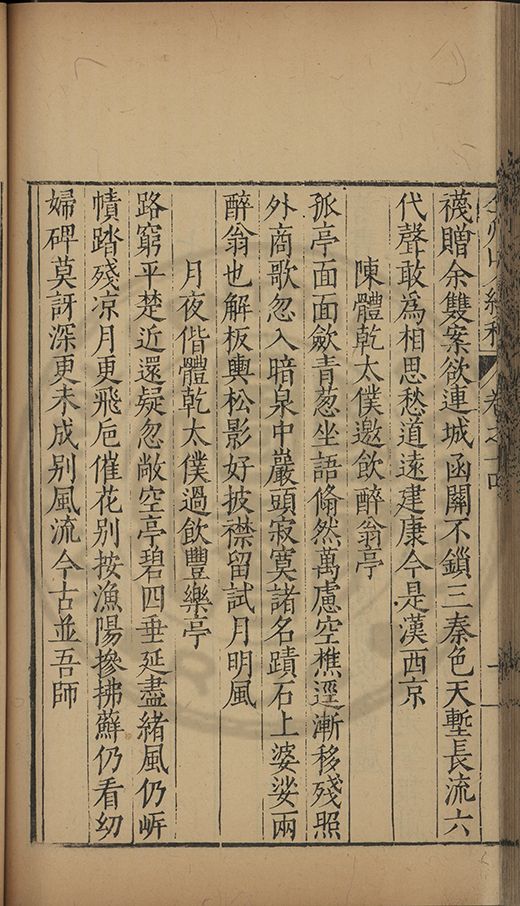 卷之十四
襪贈余雙案欲連城函關不鎖三秦色天塹長流六
代聲敢為相思愁道遠建康今是漢西京
陳體乾太僕邀飲醉翁亭
孤亭面面歛青葱坐語翛然萬慮空樵逕漸移殘照
外商歌忽入暗泉中巖頭寂寞諸名蹟石上婆娑兩
醉翁也解板輿松影好披襟留試月明風
月夜偕體乾太僕過飲豐樂亭
路窮平楚近還疑忽敞空亭碧四垂延盡緒風仍岍
幘踏殘凉月更飛巵催花別按漁陽摻拂蘚仍看㓜
婦碑莫訝深更未成別風流今古並吾師